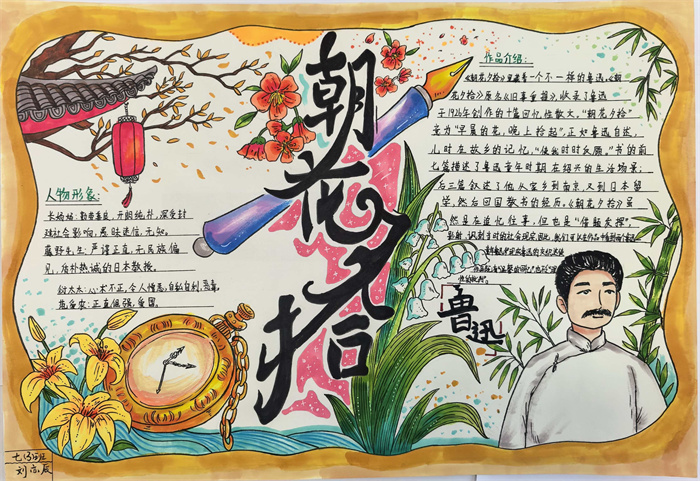 朝花夕拾
作品介绍:
《朝花夕拾》里藏着一个不一样的鲁迅,《朝
花夕拾》原名《旧事重提》,收录了鲁迅
于1926年创作的十篇回忆性散文,"朝花夕拾"
意为"早晨的花,晚上拾起",正如鲁迅自述,
儿时在故乡的记忆,"使我时时反顾。"书的前
七篇描述了鲁迅童年时期在绍兴的生活场景;
后三篇叙述了他从家乡到南京,又到日本留
学,然后回国教书的经历。《朝花夕拾》虽
然是在追忆往事,但也是"借题发挥",
人物形象:
长妈妈:勤劳善良,开朗纯朴,深受封
建社会影响,愚昧迷信,无知。
藤野先生:严谨正直,无民族偏
见,质朴热诚的日本教授。
衍太太:心术不正,令人憎恶,自私自利,恶毒。
范爱农:正直倔强,爱国。
鲁迅